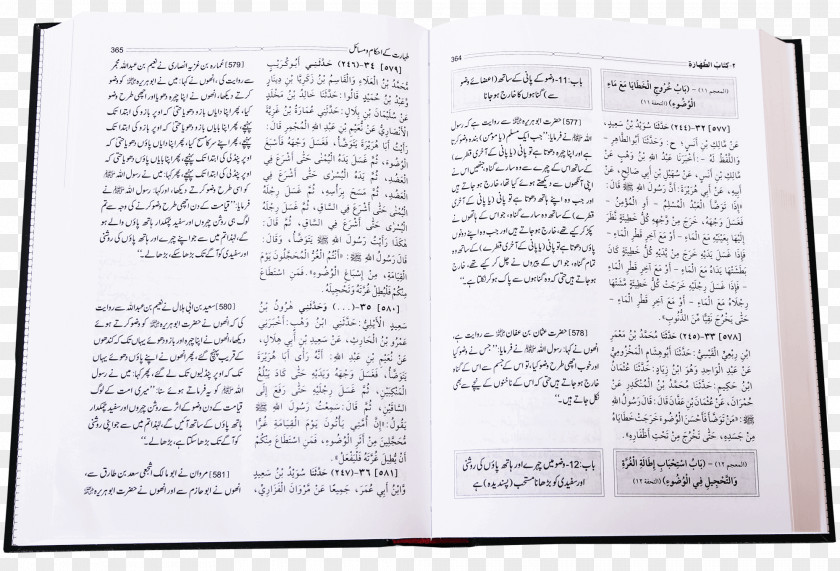 364
٢- كتاب الطهارة
(المعجم ١١) - (بَابُ خُرُوجِ الْخَطَايَا مَعَ مَاءِ
الْوُضُوءِ) (التحفة ١١)
[٥٧٧] ٣٢-(٢٤٤) حَدَّثَنَا سُوَيْدُ بْنُ سَعِيدٍ،
عَنْ مَالِكِ بْنِ أَنَسٍ؛ ح: وَحَدَّثَنَا أَبُو الطَّاهِرِ -
وَاللَّفْظُ لَهُ -: أَخْبَرَنَا عَبْدُ اللهِ بْنُ وَهْبٍ عَنْ
مَالِكِ بْنِ أَنَسٍ، عَنْ سُهَيْلِ بْنِ أَبِي صَالِحٍ، عَنْ
أَبِيهِ، عَنْ أَبِي هُرَيْرَةَ: أَنَّ رَسُولَ اللهِ ﷺ قَالَ:
«إِذَا تَوَضَّأَ الْعَبْدُ الْمُسْلِمُ - أَوِ الْمُؤْمِنُ -
فَغَسَلَ وَجْهَهُ، خَرَجَ مِنْ وَجْهِهِ كُلُّ خَطِيئَةٍ نَظَرَ
إِلَيْهَا بِعَيْنَيْهِ مَعَ الْمَاءِ - أَوْ مَعَ آخِرِ قَطْرِ الْمَاءِ -
فَإِذَا غَسَلَ يَدَيْهِ خَرَجَ مِنْ يَدَيْهِ كُلُّ خَطِيئَةٍ كَانَ
بَطَشَتْهَا يَدَاهُ مَعَ الْمَاءِ - أَوْ مَعَ آخِرِ قَطْرِ الْمَاءِ -
فَإِذَا غَسَلَ رِجْلَيْهِ خَرَجَتْ كُلُّ خَطِيئَةٍ مَشَتْهَا
رِجْلَاهُ مَعَ الْمَاءِ - أَوْ مَعَ آخِرِ قَطْرِ الْمَاءِ -
حَتَّى يَخْرُجَ نَقِيًّا مِّنَ الذُّنُوبِ».
[٥٧٨] ٣٣-(٢٤٥) حَدَّثَنَا مُحَمَّدُ بْنُ مَعْمَرِ
ابْنِ رِبْعِيٍّ الْقَيْسِيُّ: حَدَّثَنَا أَبُو هِشَامٍ الْمَخْزُومِيُّ
عَنْ عَبْدِ الْوَاحِدِ وَهُوَ ابْنُ زِيَادٍ: حَدَّثَنَا عُثْمَانُ
ابْنُ حَكِيمٍ: حَدَّثَنَا مُحَمَّدُ بْنُ الْمُنْكَدِرِ عَنْ
حُمْرَانَ، عَنْ عُثْمَانَ بْنِ عَفَّانَ قَالَ: قَالَ رَسُولُ اللهِ
ﷺ: «مَنْ تَوَضَّأَ فَأَحْسَنَ الْوُضُوءَ خَرَجَتْ خَطَايَاهُ
مِنْ جَسَدِهِ، حَتَّى تَخْرُجَ مِنْ تَحْتِ أَظْفَارِهِ».
(المعجم ١٢) - (بَابُ اسْتِحْبَابِ إِطَالَةِ الْغُرَّةِ
وَالتَّحْجِيلِ فِي الْوُضُوءِ) (التحفة ١٢)
باب:11-وضو کے پانی کے ساتھ (اعضائے وضو
سے) گناہوں کا خارج ہو جانا
[577] حضرت ابوہریرہ ﷜ سے روایت ہے کہ رسول
اللہ ﷺ نے فرمایا: ”جب ایک مسلم (یا مومن) بندہ وضو کرتا
ہے اور اپنا چہرہ دھوتا ہے تو پانی (یا پانی کے آخری قطرے)
کے ساتھ اس کے چہرے سے وہ سارے گناہ، جنھیں اس نے
اپنی آنکھوں سے دیکھتے ہوئے کیا تھا، خارج ہو جاتے ہیں
اور جب وہ اپنے ہاتھ دھوتا ہے تو پانی (یا پانی کے آخری
قطرے) کے ساتھ وہ سارے گناہ، جو اس کے ہاتھوں نے
پکڑ کر کیے تھے، خارج ہو جاتے ہیں اور جب وہ اپنے دونوں
پاؤں دھوتا ہے تو پانی (یا پانی کے آخری قطرے) کے ساتھ وہ
تمام گناہ، جو اس کے پیروں نے چل کر کیے تھے، خارج
ہو جاتے ہیں حتی کہ وہ گناہوں سے پاک ہو کر نکلتا ہے۔“
[578] حضرت عثمان بن عفان ﷜ سے روایت ہے،
انھوں نے کہا: رسول اللہ ﷺ نے فرمایا: ”جس نے وضو کیا
اور خوب اچھی طرح وضو کیا، تو اس کے جسم سے اس کے گناہ
خارج ہو جاتے ہیں حتی کہ اس کے ناخنوں کے نیچے سے بھی
نکل جاتے ہیں۔“
باب:12-وضو میں چہرے اور ہاتھ پاؤں کی روشنی
اور سفیدی کو بڑھانا مستحب (پسندیدہ) ہے
طہارت کے احکام و مسائل
365
[٥٧٩] ٣٤-(٢٤٦) حَدَّثَنِي أَبُو كُرَيْبٍ
مُحَمَّدُ بْنُ الْعَلَاءِ وَالْقَاسِمُ بْنُ زَكَرِيَّا بْنِ دِينَارٍ
وَعَبْدُ بْنُ حُمَيْدٍ قَالُوا: حَدَّثَنَا خَالِدُ بْنُ مَخْلَدٍ
عَنْ سُلَيْمَانَ بْنِ بِلَالٍ: حَدَّثَنِي عُمَارَةُ بْنُ غَزِيَّةَ
الْأَنْصَارِيُّ عَنْ نُعَيْمِ بْنِ عَبْدِ اللهِ الْمُجْمِرِ قَالَ:
رَأَيْتُ أَبَا هُرَيْرَةَ يَتَوَضَّأُ، فَغَسَلَ وَجْهَهُ فَأَسْبَغَ
الْوُضُوءَ، ثُمَّ غَسَلَ يَدَهُ الْيُمْنَى حَتَّى أَشْرَعَ فِي
الْعَضُدِ، ثُمَّ يَدَهُ الْيُسْرَى حَتَّى أَشْرَعَ فِي
الْعَضُدِ، ثُمَّ مَسَحَ بِرَأْسِهِ، ثُمَّ غَسَلَ رِجْلَهُ
الْيُمْنَى حَتَّى أَشْرَعَ فِي السَّاقِ، ثُمَّ غَسَلَ رِجْلَهُ
الْيُسْرَى حَتَّى أَشْرَعَ فِي السَّاقِ، ثُمَّ قَالَ:
هٰكَذَا رَأَيْتُ رَسُولَ اللهِ ﷺ يَتَوَضَّأُ، وَقَالَ:
قَالَ رَسُولُ اللهِ ﷺ: «أَنْتُمُ الْغُرُّ الْمُحَجَّلُونَ يَوْمَ
الْقِيَامَةِ، مِنْ إِسْبَاغِ الْوُضُوءِ، فَمَنِ اسْتَطَاعَ
مِنْكُمْ فَلْيُطِلْ غُرَّتَهُ وَتَحْجِيلَهُ.
[٥٨٠] ٣٥-(...) وَحَدَّثَنِي هَارُونُ بْنُ
سَعِيدٍ الْأَيْلِيُّ: حَدَّثَنِي ابْنُ وَهْبٍ: أَخْبَرَنِي
عَمْرُو بْنُ الْحَارِثِ، عَنْ سَعِيدِ بْنِ أَبِي هِلَالٍ،
عَنْ نُعَيْمِ بْنِ عَبْدِ اللهِ: أَنَّهُ رَأَى أَبَا هُرَيْرَةَ
يَتَوَضَّأُ، فَغَسَلَ وَجْهَهُ وَيَدَيْهِ حَتَّى كَادَ يَبْلُغُ
الْمَنْكِبَيْنِ، ثُمَّ غَسَلَ رِجْلَيْهِ حَتَّى رَفَعَ إِلَى
السَّاقَيْنِ، ثُمَّ قَالَ: سَمِعْتُ رَسُولَ اللهِ ﷺ
يَقُولُ: «إِنَّ أُمَّتِي يَأْتُونَ يَوْمَ الْقِيَامَةِ غُرًّا
مُحَجَّلِينَ مِنْ أَثَرِ الْوُضُوءِ، فَمَنِ اسْتَطَاعَ مِنْكُمْ
أَنْ يُطِيلَ غُرَّتَهُ فَلْيَفْعَلْ».
[٥٨١] ٣٦-(٢٤٧) حَدَّثَنَا سُوَيْدُ بْنُ سَعِيدٍ
وَابْنُ أَبِي عُمَرَ، جَمِيعًا عَنْ مَرْوَانَ الْفَزَارِيِّ،
[579] عمارہ بن غزیہ انصاری نے نعیم بن عبداللہ مجمر
سے روایت کی، انھوں نے کہا: میں نے ابوہریرہ ﷜ کو وضو
کرتے دیکھا، انھوں نے اپنا چہرہ دھویا اور اچھی طرح وضو
کیا، پھر اپنا دایاں بازو دھویا حتی کہ اوپر بازو کی ابتدا تک
پہنچے، پھر اپنا بایاں بازو دھویا حتی کہ اوپر بازو کی ابتدا تک
پہنچے، پھر اپنے سر کا مسح کیا، پھر اپنا دایاں پاؤں دھویا حتی کہ
اوپر پنڈلی کی ابتدا تک پہنچے، پھر اپنا بایاں پاؤں دھویا حتی کہ
اوپر پنڈلی کی ابتدا تک پہنچے، پھر کہا: میں نے رسول اللہ ﷺ
کو اسی طرح وضو کرتے دیکھا، اور کہا: رسول اللہ ﷺ نے
فرمایا: ”قیامت کے دن اچھی طرح وضو کرنے کی وجہ سے تم
لوگ ہی روشن چہروں اور سفید چمکدار ہاتھ پاؤں والے ہو
گے، لہٰذا تم میں سے جو اپنے چہرے اور ہاتھ پاؤں کی روشنی
اور سفیدی کو آگے تک بڑھا سکے، بڑھا لے۔“
[580] سعید بن ابی ہلال نے نعیم بن عبداللہ سے روایت
کی کہ انھوں نے حضرت ابوہریرہ ﷜ کو وضو کرتے ہوئے
دیکھا، انھوں نے اپنا چہرہ اور بازو دھوئے یہاں تک کہ کندھوں
کے قریب پہنچ گئے، پھر انھوں نے اپنے پاؤں دھوئے یہاں
تک کہ اوپر پنڈلیوں تک لے گئے، پھر کہا: میں نے رسول
اللہ ﷺ کو یہ فرماتے ہوئے سنا: ”میری امت کے لوگ
قیامت کے دن وضو کے اثر سے روشن چہروں اور سفید چمکدار
ہاتھ پاؤں کے ساتھ آئیں گے، لہٰذا تم میں سے جو اپنی روشنی
کو آگے تک بڑھا سکتا ہے، بڑھا لے۔“
[581] مروان نے ابو مالک اشجعی سعد بن طارق سے،
انھوں نے ابو حازم سے اور انھوں نے حضرت ابوہریرہ ﷜